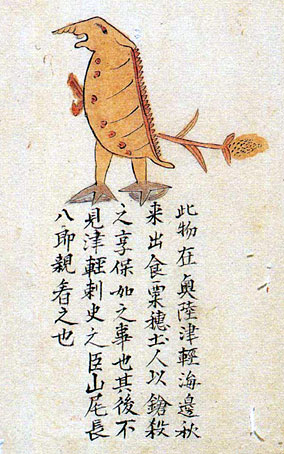 此物在奥陸津輕海邊秋
来出食粟穗土人以鎗殺
之享保加之事也其後不
見津輕刺史之臣山尾長
八郎親看之也